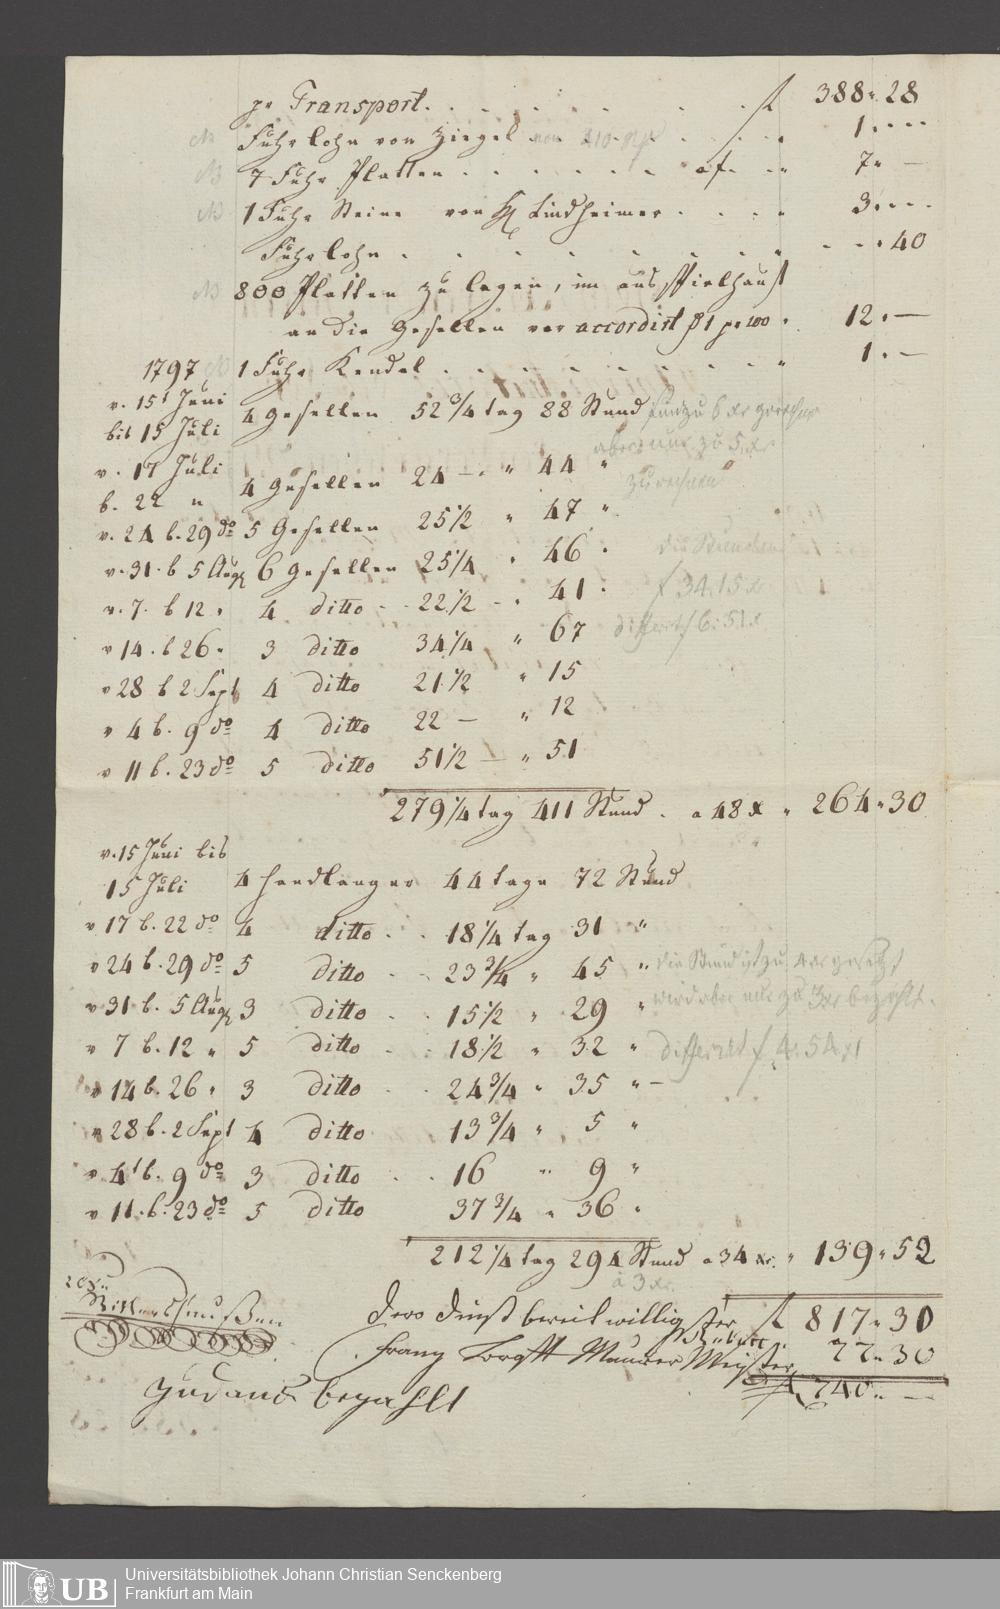 pr Transport. . . . . . . . f 388 " 28
NB Fuhrlohn von Ziegel von 210 . . . . " 1 " - -
NB 7 Fuhr Platten . . . . . . af. . " 7 " —
NB 1 Fuhr Steine von H Lindheimer . . . . " 3 " - -
Fuhrlohn . . . . . . . " - - " 40
NB 800 Platten zu legen, im
an die Gesellen ver accordirt f 1 pr 100 " 12 " —
1797 NB 1 Fuhr Kendel . . . . . . . " 1 " —
v. 15t Juni
bis 15 Juli 4 Gesellen 52 3/4 tag 88 Stund sind zu 6 xr gerechnet
aber nur zu 5 xr
zu rechnen
v. 17 Juli
b. 22 " 4 Gesellen 24 — " 44 "
v. 24 b. 29 do 5 Gesellen 25 1/2 " 47 "
v. 31. b 5 Aug 6 Gesellen 25 1/4 " 46 "
v. 7. b 12 " 4 ditto - - 22 1/2 - " 41 " f 34.15 x
v 14. b 26 " 3 ditto 34 1/4 " 67 differirt f 6.51 x
v 28 b 2 Sept 4 ditto 21 1/2 " 15
v 4 b. 9 do 4 ditto 22 — " 12
v 11 b. 23 do 5 ditto 51 1/2 — " 51
279 1/4 tag 411 Stund . a 48 x " 264 " 30
v. 15 Juni bis
15 Juli 4 Handlanger 44 tage 72 Stund
v 17 b. 22 do 4 ditto . . 18 1/4 tag 31 "
v 24 b. 29 do 5 ditto . . 23 3/4 " 45 " die Stund ist zu 4 xr gesetzt
v 31 b. 5 Aug 3 ditto . . 15 1/2 " 29 " wird aber nur zu 3 xr bezahlt.
v 7 b. 12 " 5 ditto . . 18 1/2 " 32 " differirt f 4. 54 x
v 14 b. 26 " 3 ditto . . 24 3/4 " 35 " —
v 28 b. 2 Sept 4 ditto 13 3/4 " 5 "
v 4t b. 9 do 3 ditto . . 16 " 9 "
v 11. b. 23 do 5 ditto 37 3/4 " 36 "
212 1/4 tag 294 Stund a 34 xr. " 139 " 52
à 3 xr.
Dero dienst bereit willigster f 817 " 30
Franz Maurer Meister 77 " 30
f 740 " —
zu danck bezahlt
UB Universitätsbibliothek Johann Christian Senckenberg
Frankfurt am Main